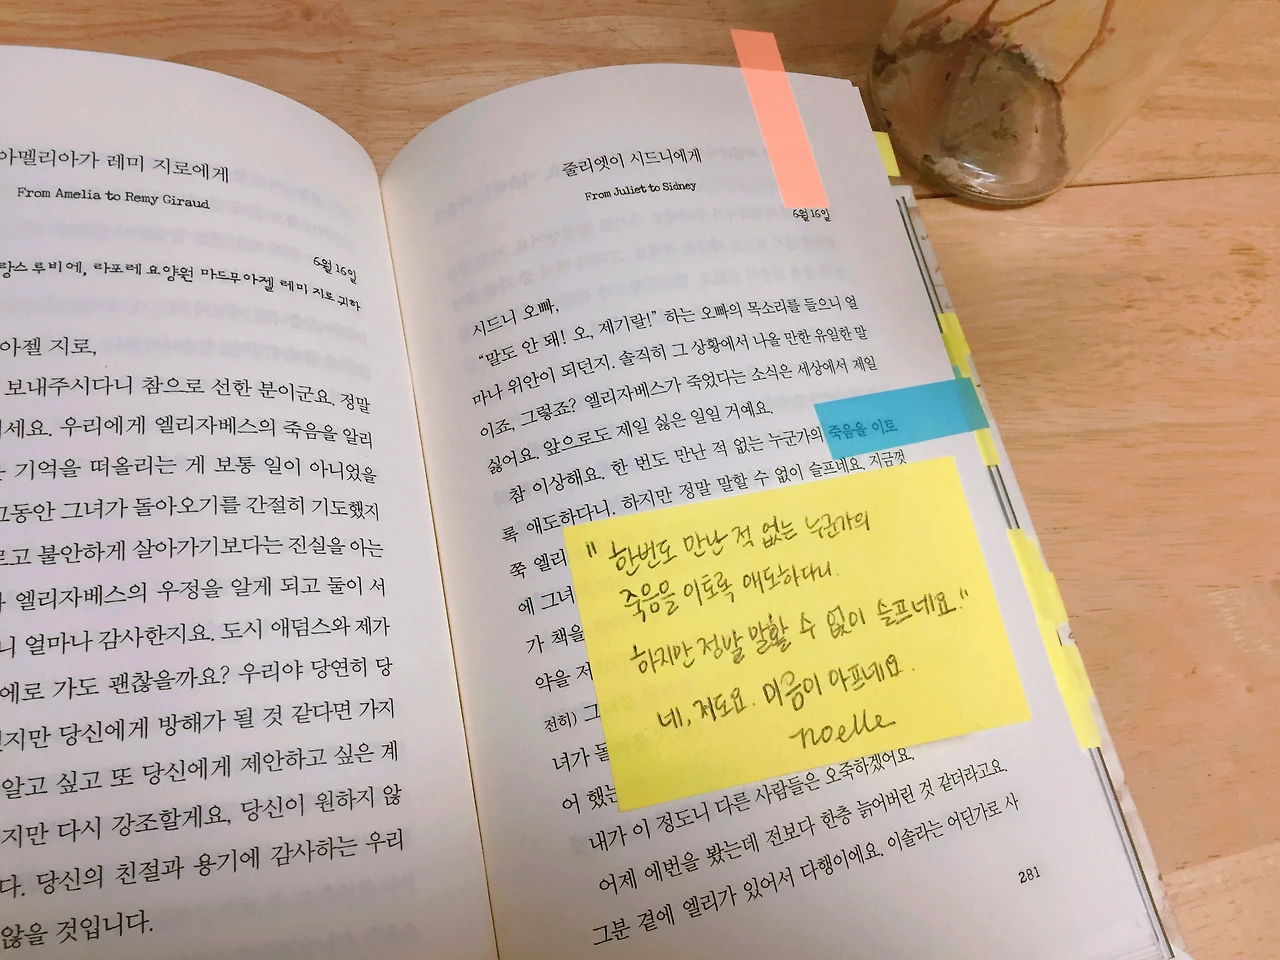 아멜리아가 레미 지로에게
From Amelia to Remy Giraud
6월 16일
랑스 루비에, 라포레 요양원 마드무아젤 레미 지로 귀하
아젤 지로,
보내주시다니 참으로 선한 분이군요. 정말
세요. 우리에게 엘리자베스의 죽음을 알리
기억을 떠올리는 게 보통 일이 아니었을
그동안 그녀가 돌아오기를 간절히 기도했지
르고 불안하게 살아가기보다는 진실을 아는
엘리자베스의 우정을 알게 되고 둘이 서
니 얼마나 감사한지요. 도시 애덤스와 제가
에로 가도 괜찮을까요? 우리야 당연히 당
지만 당신에게 방해가 될 것 같다면 가지
알고 싶고 또 당신에게 제안하고 싶은 계
지만 다시 강조할게요, 당신이 원하지 않
다. 당신의 친절과 용기에 감사하는 우리
않을 것입니다.
줄리엣이 시드니에게
From Juliet to Sidney
6월 16일
시드니 오빠,
“말도 안 돼! 오, 제기랄!” 하는 오빠의 목소리를 들으니 얼
마나 위안이 되던지. 솔직히 그 상황에서 나올 만한 유일한 말
이죠, 그렇죠? 엘리자베스가 죽었다는 소식은 세상에서 제일
싫어요. 앞으로도 제일 싫은 일일 거예요.
참 이상해요. 한 번도 만난 적 없는 누군가의 죽음을 이토
록 애도하다니. 하지만 정말 말할 수 없이 슬프네요. 지금껏
쭉 엘리
에 그녀
가 책을
약을 저
전히) 그
녀가 돌
어 했는
" 한번도 만난 적 없는 누군가의
죽음을 이토록 애도하다니.
하지만 정말 말할 수 없이 슬프네요."
네, 저도요. 마음이 아프네요.
noelle
내가 이 정도니 다른 사람들은 오죽하겠어요.
어제 에번을 봤는데 전보다 한층 늙어버린 것 같더라고요.
그분 곁에 엘리가 있어서 다행이에요. 이솔라는 어딘가로 사
281